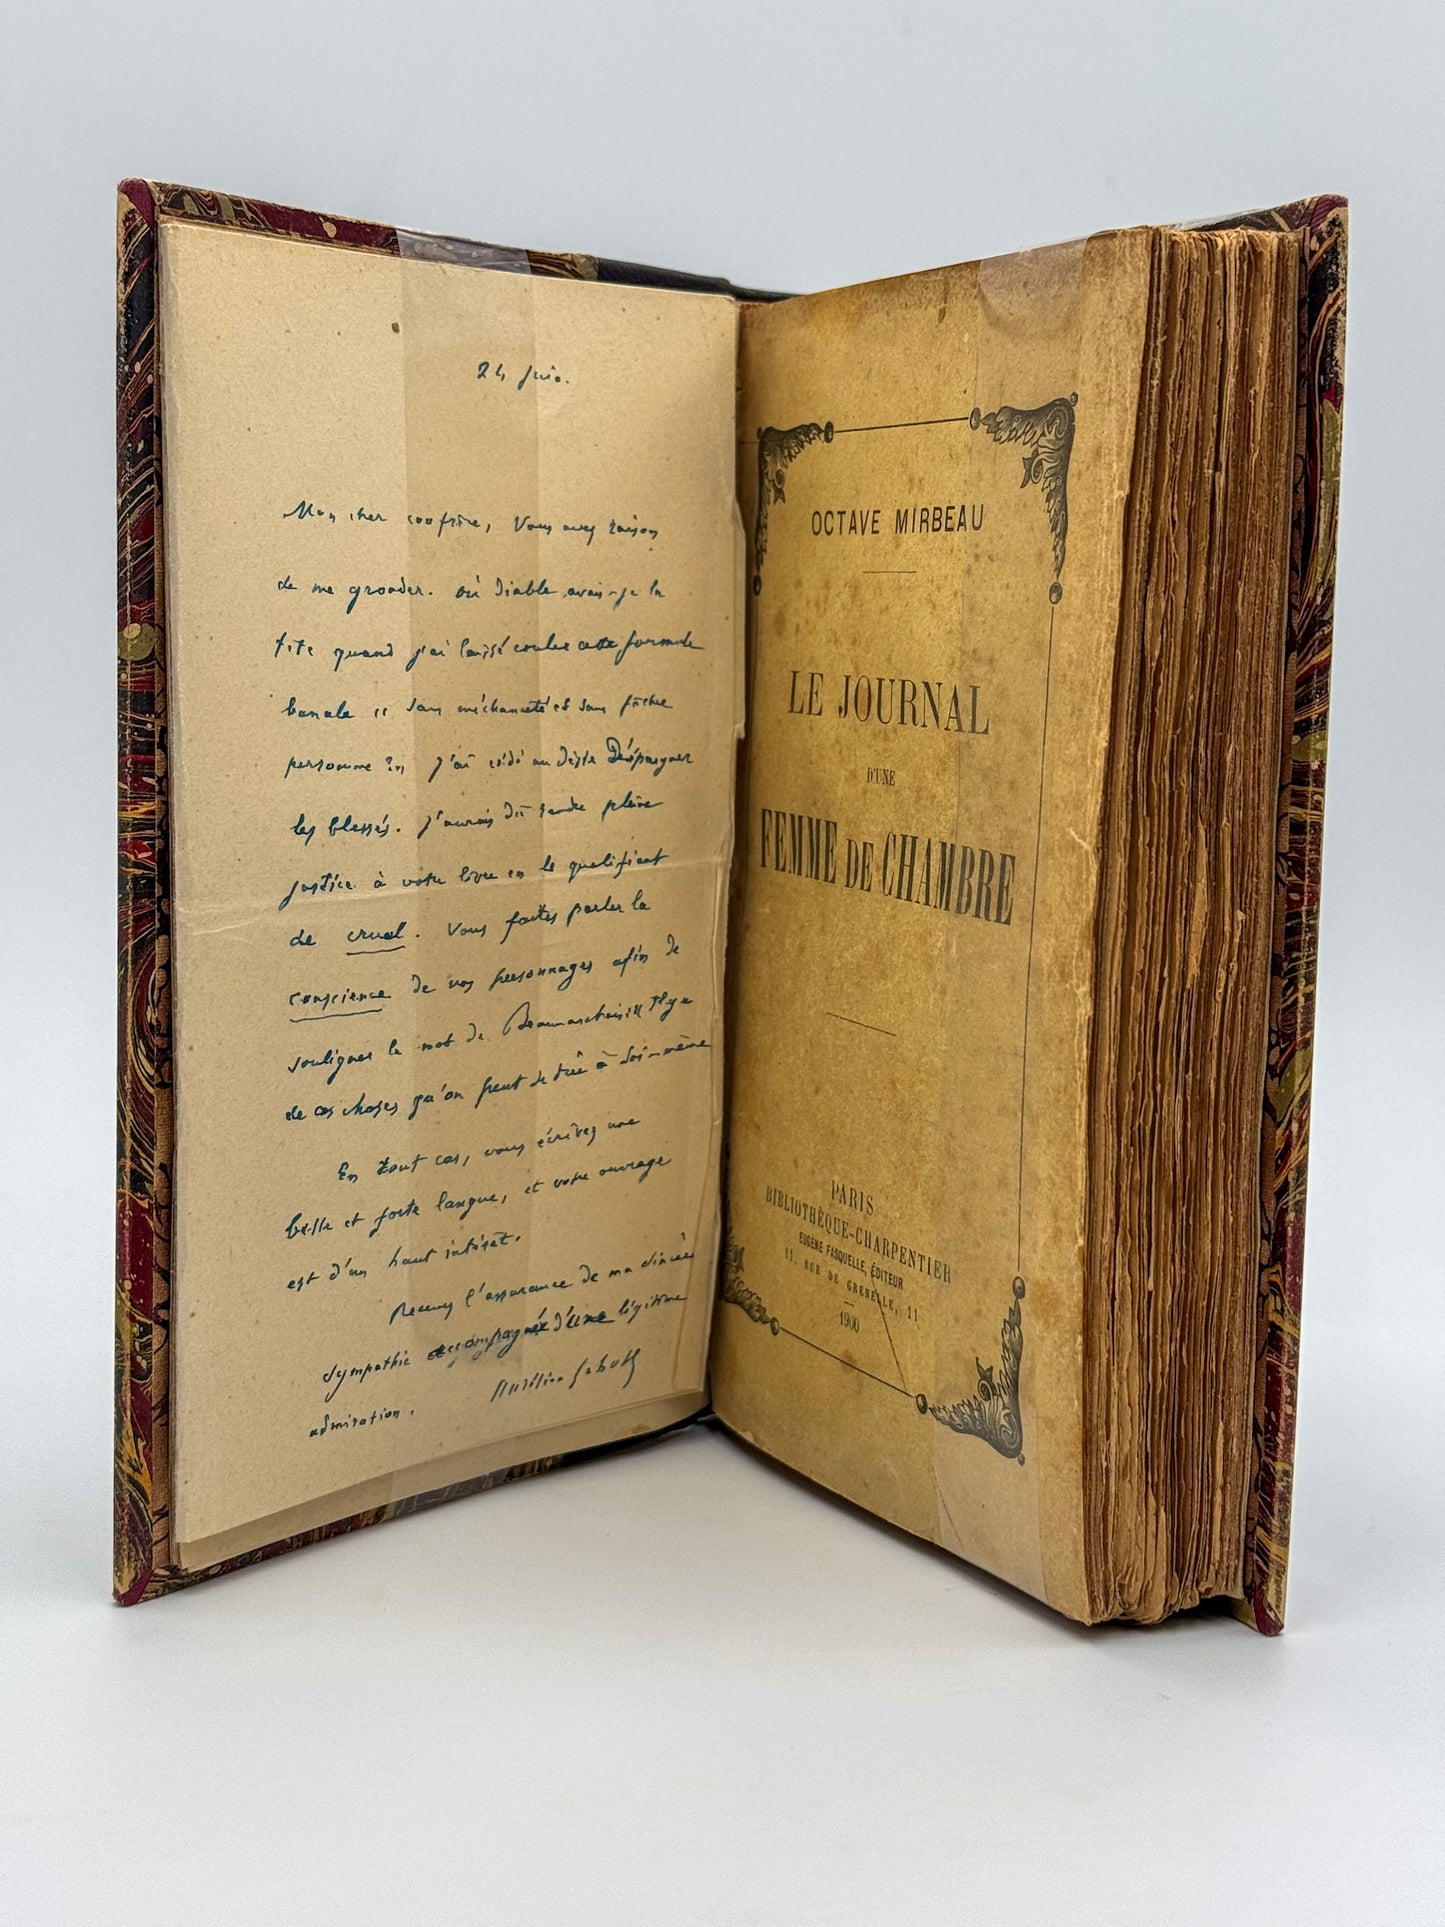 24 juin.
Mon cher confrère, Vous avez raison
de me gronder. Où Diable avais-je la
tête quand j'ai laissé couler cette formule
banale " sans méchanceté et sans fâcher
personne ". J'ai cédé au désir D'épargner
les blessés. J'aurais dû rendre pleine
justice à votre livre en le qualifiant
de cruel. Vous faites parler la
conscience de vos personnages afin de
souligner le mot de Beaumarchais : Il y a
de ces choses qu'on peut se dire à soi-même
En tout cas, vous écrivez une
belle et forte langue, et votre ouvrage
est d'un haut intérêt.
Recevez l'assurance de ma sincère
sympathie accompagnée d'une légitime
admiration.
Aurélien Scholl
OCTAVE MIRBEAU
LE JOURNAL
D'UNE
FEMME DE CHAMBRE
PARIS
BIBLIOTHÈQUE-CHARPENTIER
EUGÈNE FASQUELLE, ÉDITEUR
11, RUE DE GRENELLE, 11
1900